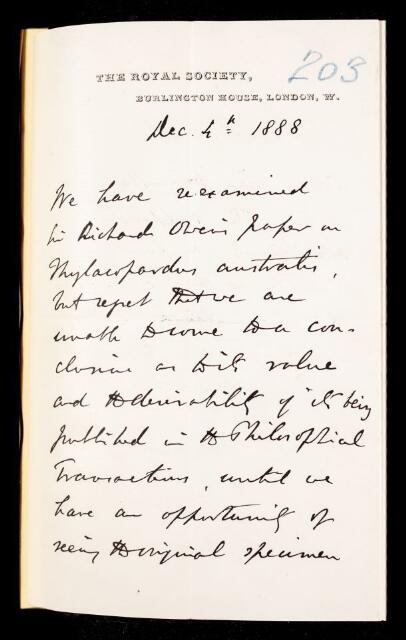 203
THE ROYAL SOCIETY,
BURLINGTON HOUSE, LONDON, W.
Dec. 4th 1888
We have reexamined
Sir Richard Owen's paper on
Thylacopardus australis,
but regret that we are
unable to come to a con-
clusion as to its value
and the desirability of its being
published in the Philosophical
Transactions, until we
have an opportunity of
seeing the original specimen